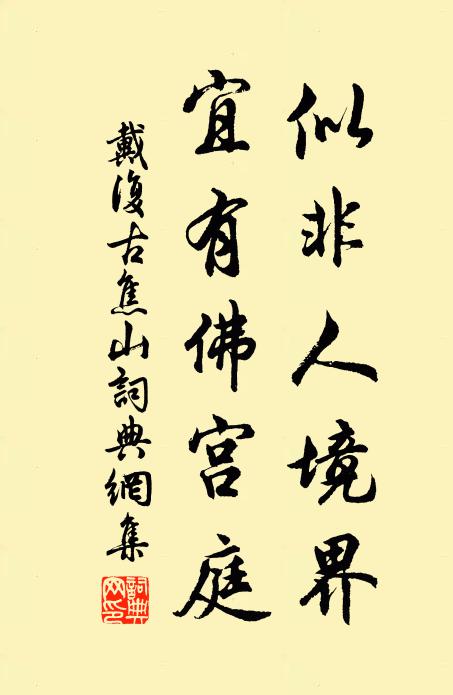 似非人境界
宜有佛宫庭
戴復古焦山詞典網集
詞典